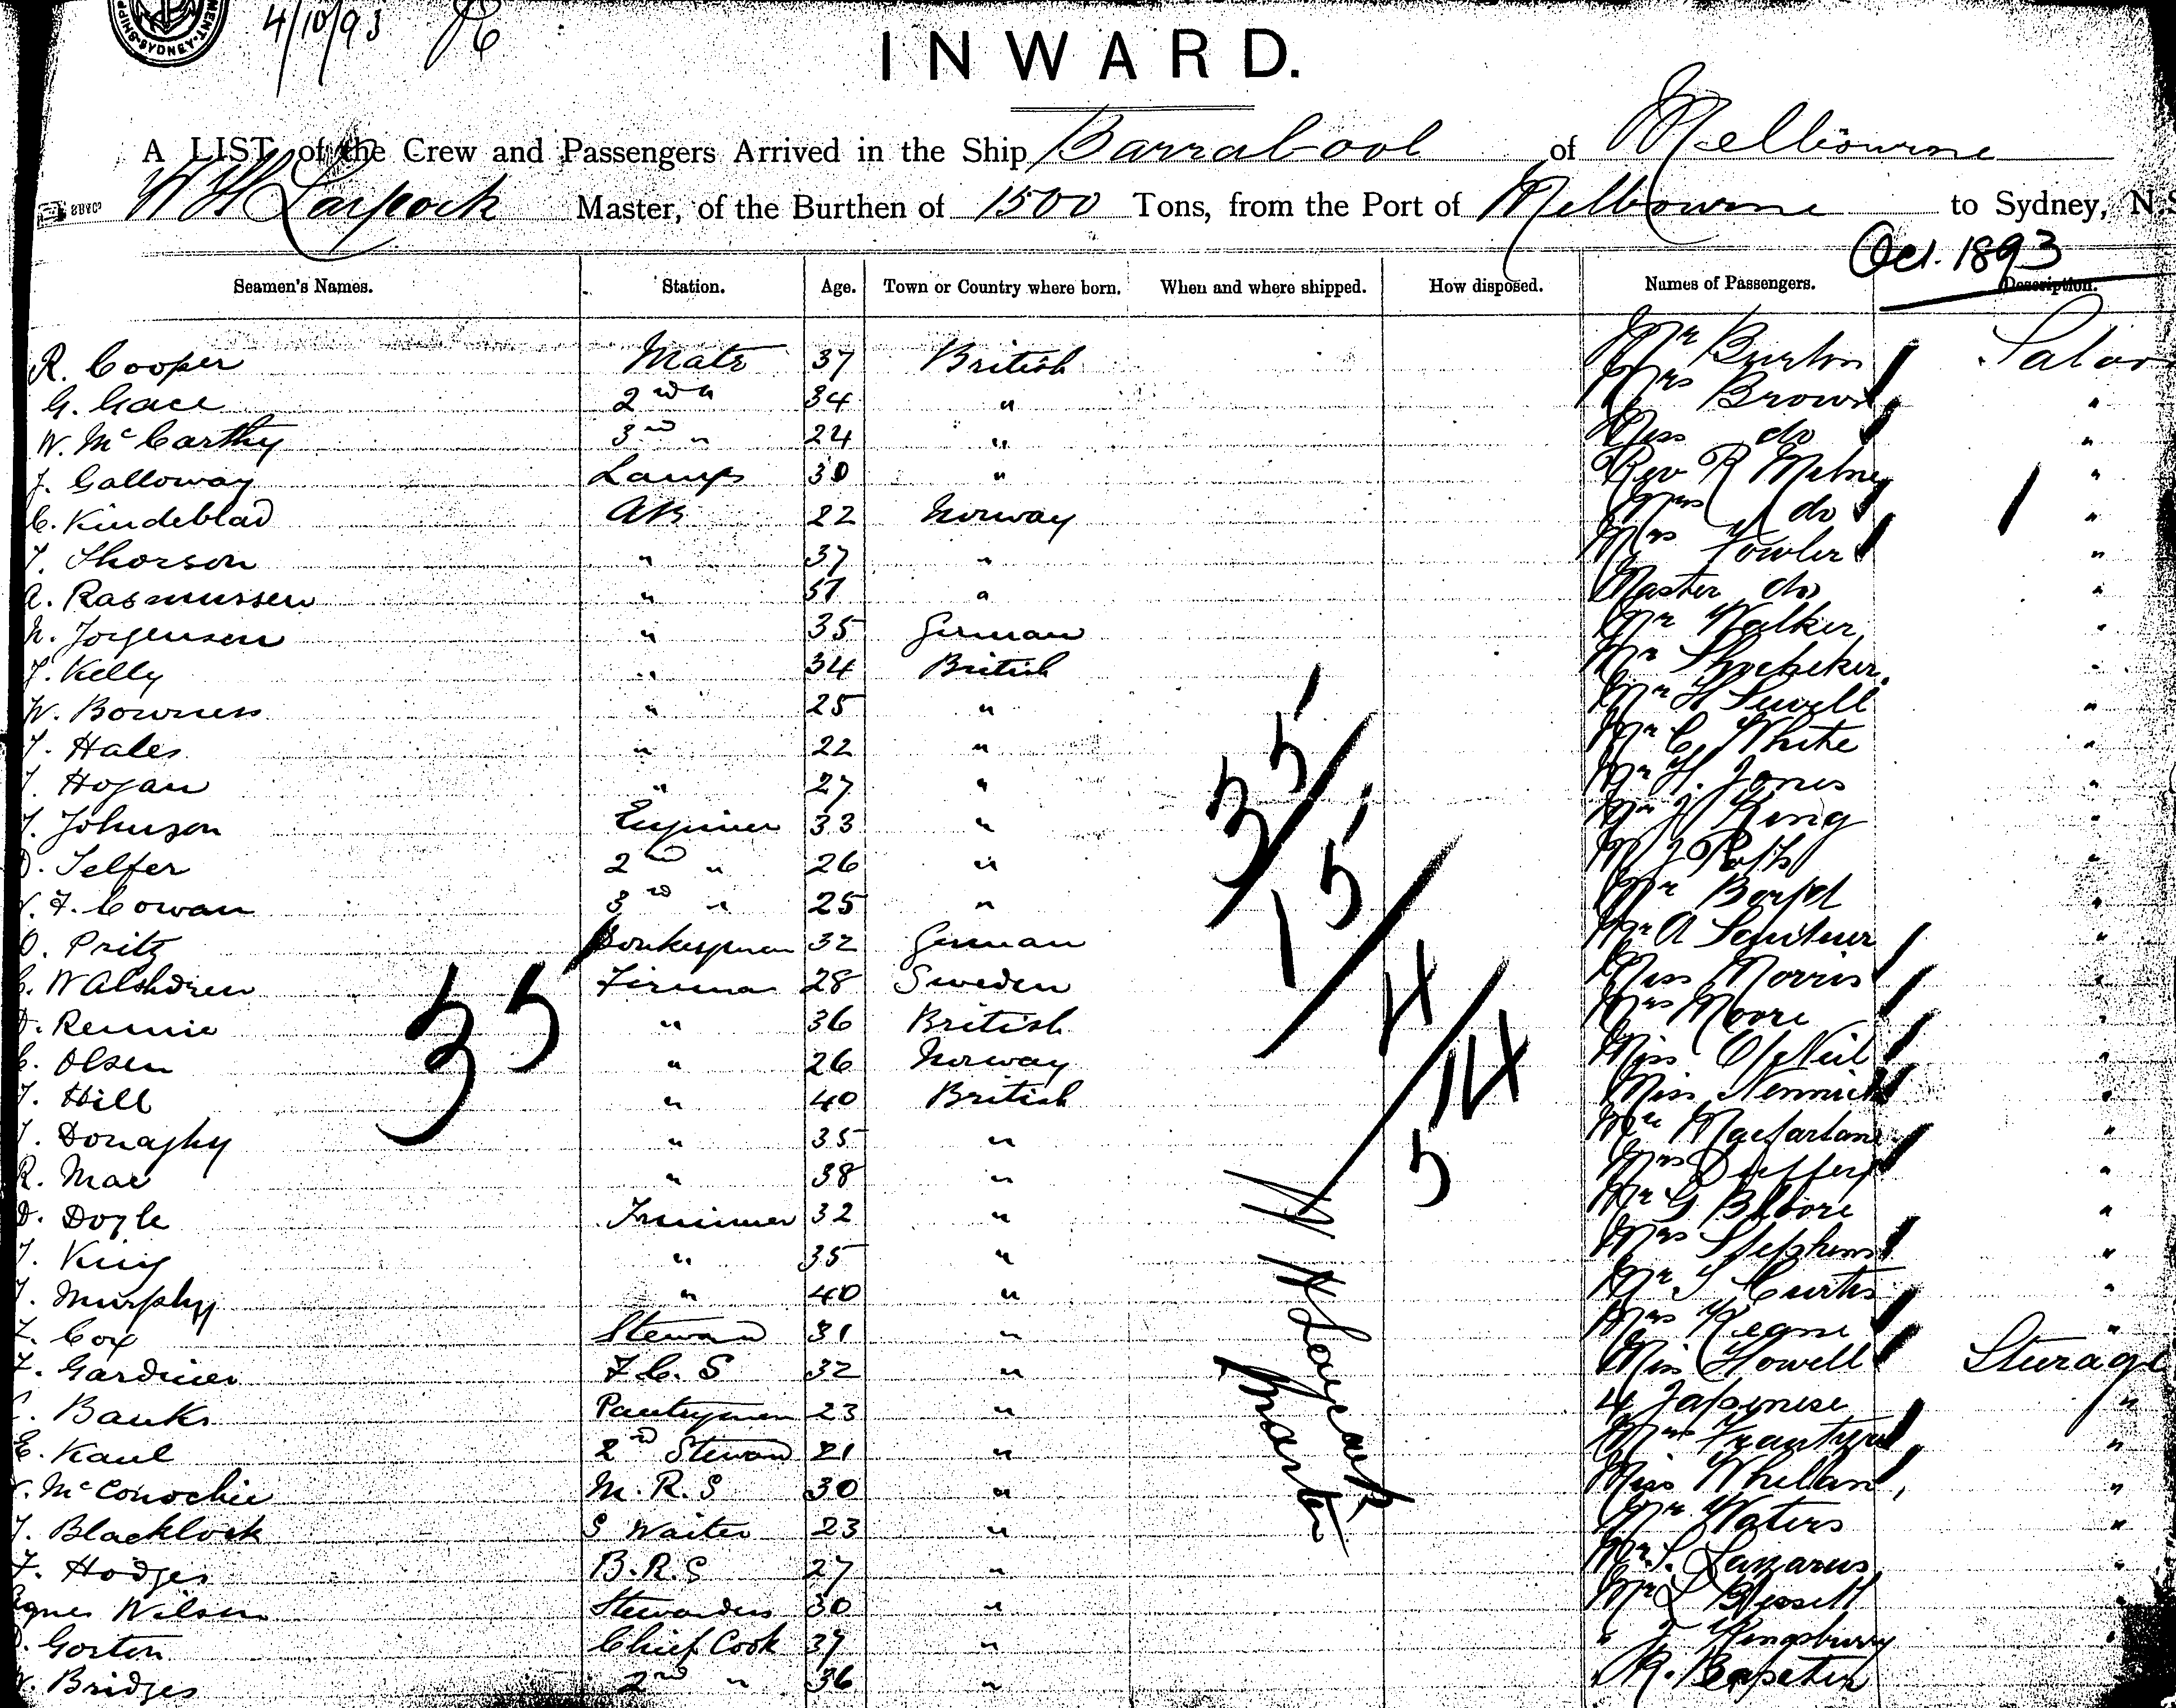 SYDNEY
4/10/93
INWARD.
A LIST of the Crew and Passengers Arrived in the Ship Barrabool of Melbourne
W H Laycock Master, of the Burthen of 1500 Tons, from the Port of Melbourne to Sydney, N.S
Oct. 1893
Seamen's Names. Station. Age. Town or Country where born. When and where shipped. How disposed. Names of Passengers. Description.
R. Cooper Mate 37 British Mr Burton Saloo
G. Gace 2nd " 34 " Mrs Brown "
W. McCarthy 3rd " 24 " Miss do "
J. Galloway Lamps 30 " Rev R Milne "
C. Kindeblad AB 22 Norway Mrs do "
T. Thorson " 37 " Mrs Fowler "
A. Rasmussen " 51 " Master do "
N. Jorgensen " 35 German Mr Walker "
J. Kelly " 34 British Mr "
W. Bowness " 25 " Mr H Sewell "
T. Hales " 22 " Mr C. White "
J. Hogan " 27 " Mr H. Jones "
J. Johnson Engineer 33 " Mr J King "
D. Telfer 2nd " 26 " Mr J "
F. Cowan 3rd " 25 " Mr "
O. Pritz Donkeyman 32 German Mr A "
C. Walshdren Fireman 28 Sweden Miss Morris "
D. Rennie " 36 British Mrs Moore "
C. Olsen " 26 Norway Miss O'Neil "
J. Hill " 40 British Miss "
J. Donaghy " 35 " Mr Macfarlane "
R. Mac " 38 " Mrs "
D. Doyle Trimmer 32 " Mr G Bloore "
J. King " 35 " Mrs Stephens "
J. Murphy " 40 " Mr S Curtis "
F. Cox Steward 31 " Mrs Keane "
F. Gardiner F.C.S 32 " Miss Howell Sturage
C. Banks Pantryman 23 " 4 Japinese "
E. Kaul 2nd Steward 21 " Mr "
McConochie M.R.S 30 " Miss Whelan "
J. Blacklock S Waiter 23 " Mr Waters "
F. Hodges B.R.S 27 " Mr S. Lazarus "
Agnes Wilson Stewardess 30 " Mr L Bissett "
Gorton Chief Cook 37 " " J Kingsbury "
W. Bridges 2nd " 36 " " R.
35
35
15
4
14
5
W H Laycock
Master